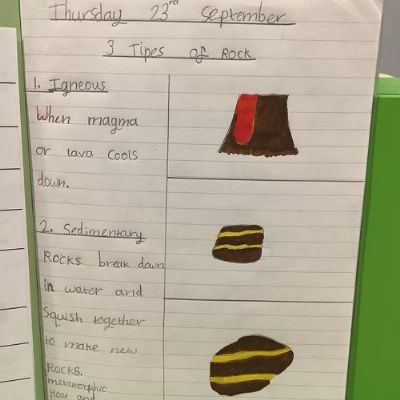 Thursday 23rd September
3 Tipes of Rock
1. Igneous
When magma
or lava cools
down.
2. Sedimentary
Rocks break down
in water and
Squish together
to make new
Rocks.
metamorphic
Heat and